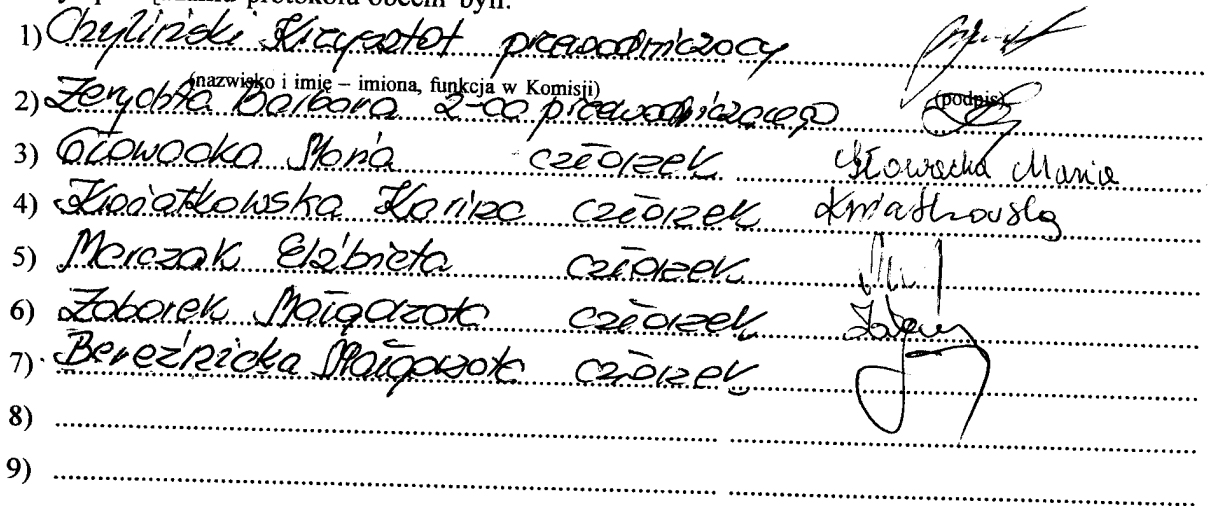 przy sporządzaniu protokołu obecni byli:
1) Chyliński Krzysztof przewodniczący
(nazwisko i imię – imiona, funkcja w Komisji) (podpis)
2) Zerychta Barbara z-ca przewodniczącego
3) Głowacka Maria członek Głowacka Maria
4) Kwiatkowska Karina członek Kwiatkowska
5) Marczak Elżbieta członek
6) Zaborek Małgorzata członek
7) Bereźnicka Małgorzata członek
8)
9)